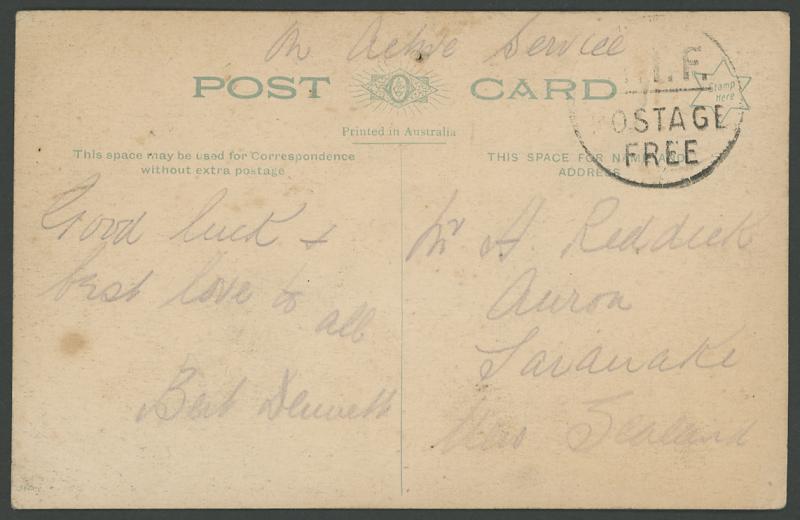 On Active Service
POST CARD
.I.F.
OSTAGE
FREE
Stamp
Here
Printed in Australia
This space may be used for Correspondence
without extra postage
THIS SPACE FOR NAME AND
ADDRESS
Good luck +
best love to
all
Bert Dennett
Mr A. Reddick
Auroa
Taranake
New Zealand